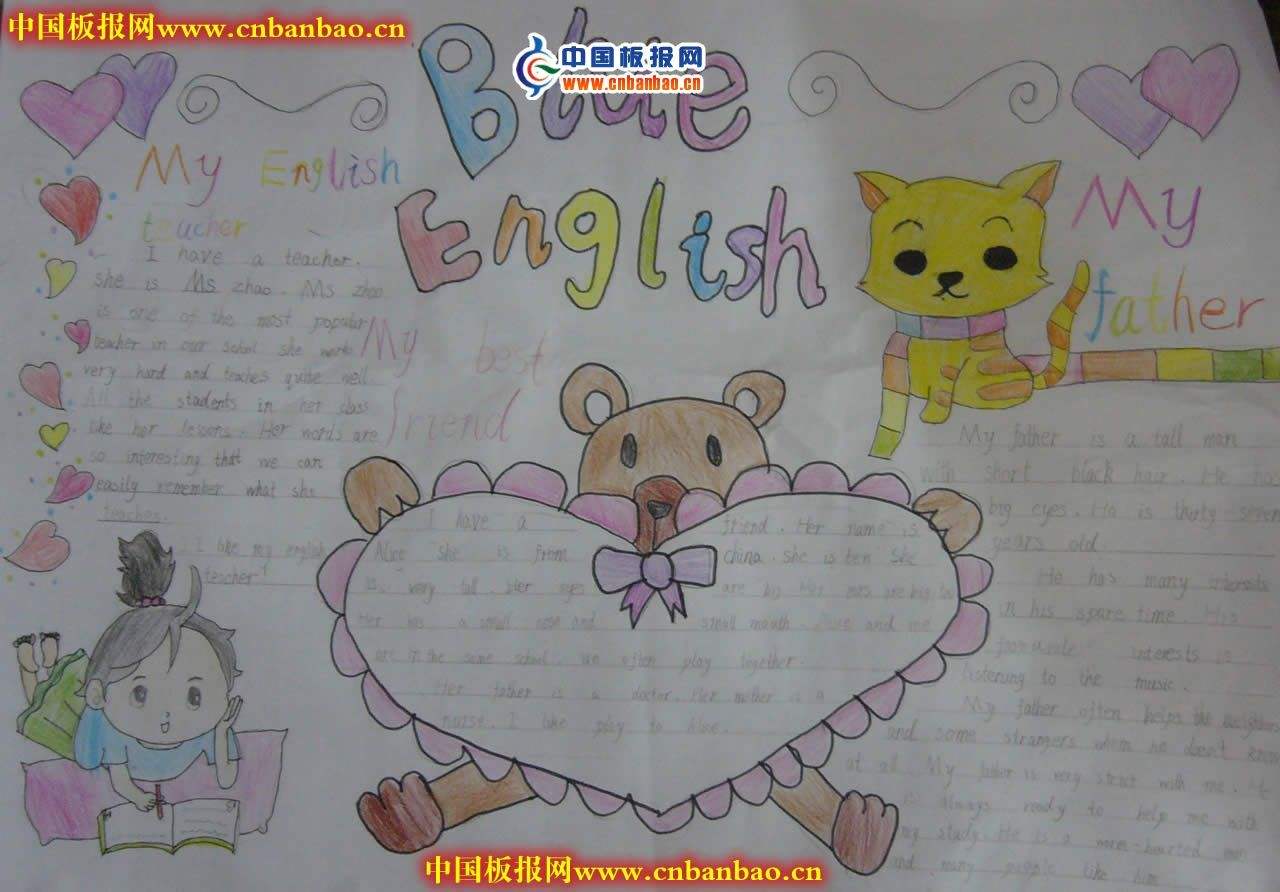 中国板报网www.cnbanbao.cn
中国板报网
www.cnbanbao.cn
Blue
English
My English
teacher
I have a teacher.
she is Ms zhao. Ms zhao
is one of the most popular
teacher in our school she works
very hard and teaches quite well
All the students in her class
like her lessons. Her words are
so interesting that we can
easily remember what she
teaches.
I like my english
teacher!
My best
friend
I have a friend. Her name is
Alice she is from china. she is ten she
is very tall. Her eyes are big Her
Her has a small nose and small mouth. and me
are in the same school. we often play together.
Her father is a doctor. Her mother is a
nurse. I like play to
My
father
My father is a tall man
with short black hair. He has
big eyes. He is thirty seven
years old
He has many interests
in his spare time. His
interests is
listening to the music.
My father often helps the neighbors
and some strangers whom he doesn't know
at all. My father is very strict with me. He
is always ready to help me with
my study. He is a warm-hearted man
and many people like him
中国板报网www.cnbanbao.cn